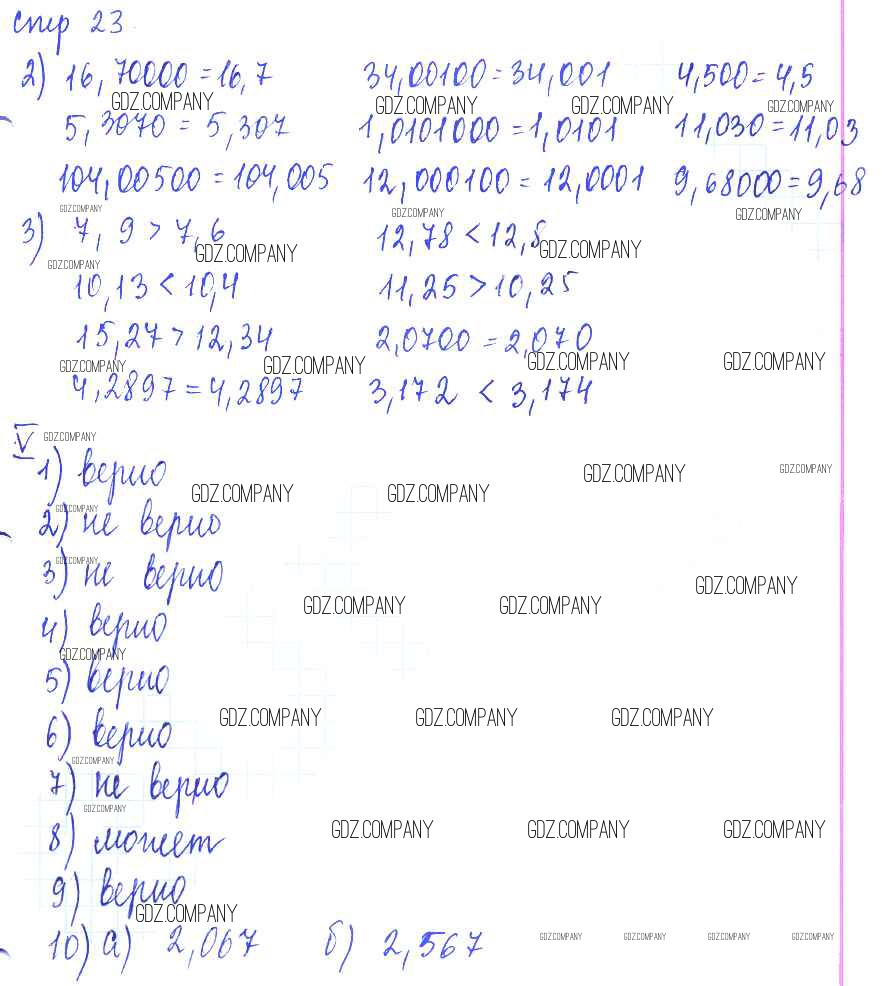 стр 23
2) 16,70000 = 16,7 34,00100 = 34,001 4,500 = 4,5
GDZ.COMPANY GDZ.COMPANY GDZ.COMPANY GDZ.COMPANY
5,3070 = 5,307 1,0101000 = 1,0101 11,030 = 11,03
104,00500 = 104,005 12,000100 = 12,0001 9,68000 = 9,68
GDZ.COMPANY GDZ.COMPANY GDZ.COMPANY
3) 7,9 > 7,6 12,78 < 12,8
GDZ.COMPANY GDZ.COMPANY
GDZ.COMPANY
10,13 < 10,4 11,25 > 10,25
15,27 > 12,34 2,0700 = 2,070
GDZ.COMPANY GDZ.COMPANY GDZ.COMPANY GDZ.COMPANY
4,2897 = 4,2897 3,172 < 3,174
V GDZ.COMPANY
1) верно
GDZ.COMPANY GDZ.COMPANY
GDZ.COMPANY GDZ.COMPANY
GDZ.COMPANY
2) не верно
GDZ.COMPANY
3) не верно
GDZ.COMPANY
GDZ.COMPANY GDZ.COMPANY
4) верно
GDZ.COMPANY
5) верно
GDZ.COMPANY GDZ.COMPANY GDZ.COMPANY
6) верно
GDZ.COMPANY
7) не верно
GDZ.COMPANY
GDZ.COMPANY GDZ.COMPANY GDZ.COMPANY
8) может
9) верно
GDZ.COMPANY
10) а) 2,067 б) 2,567
GDZ.COMPANY GDZ.COMPANY GDZ.COMPANY GDZ.COMPANY